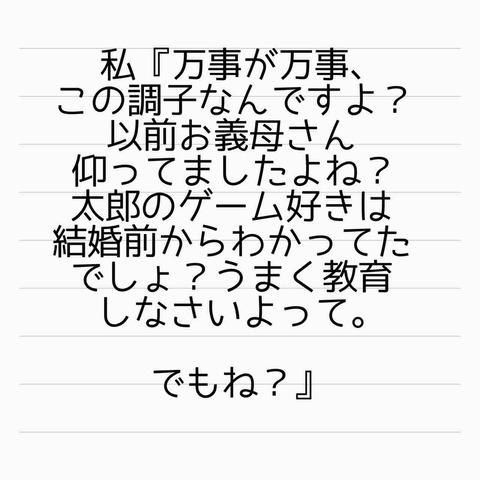 私『万事が万事、
この調子なんですよ？
以前お義母さん
仰ってましたよね？
太郎のゲーム好きは
結婚前からわかってた
でしょ？うまく教育
しなさいよって。
でもね？』